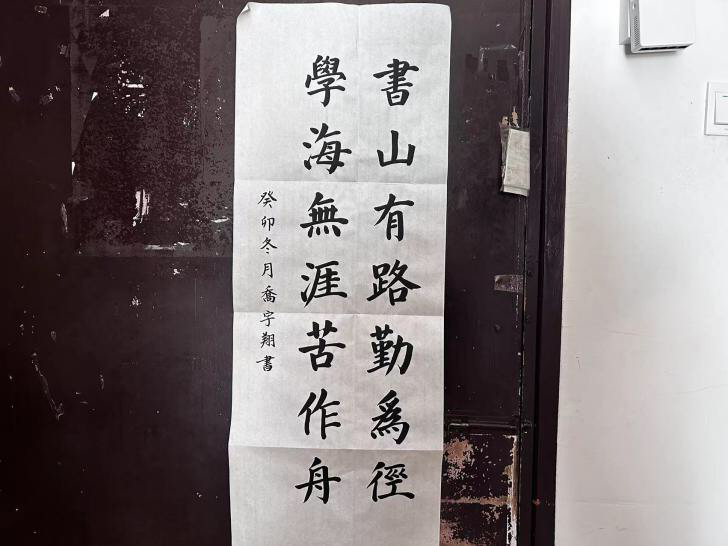 書山有路勤爲徑
學海無涯苦作舟
癸卯冬月喬宇翔書